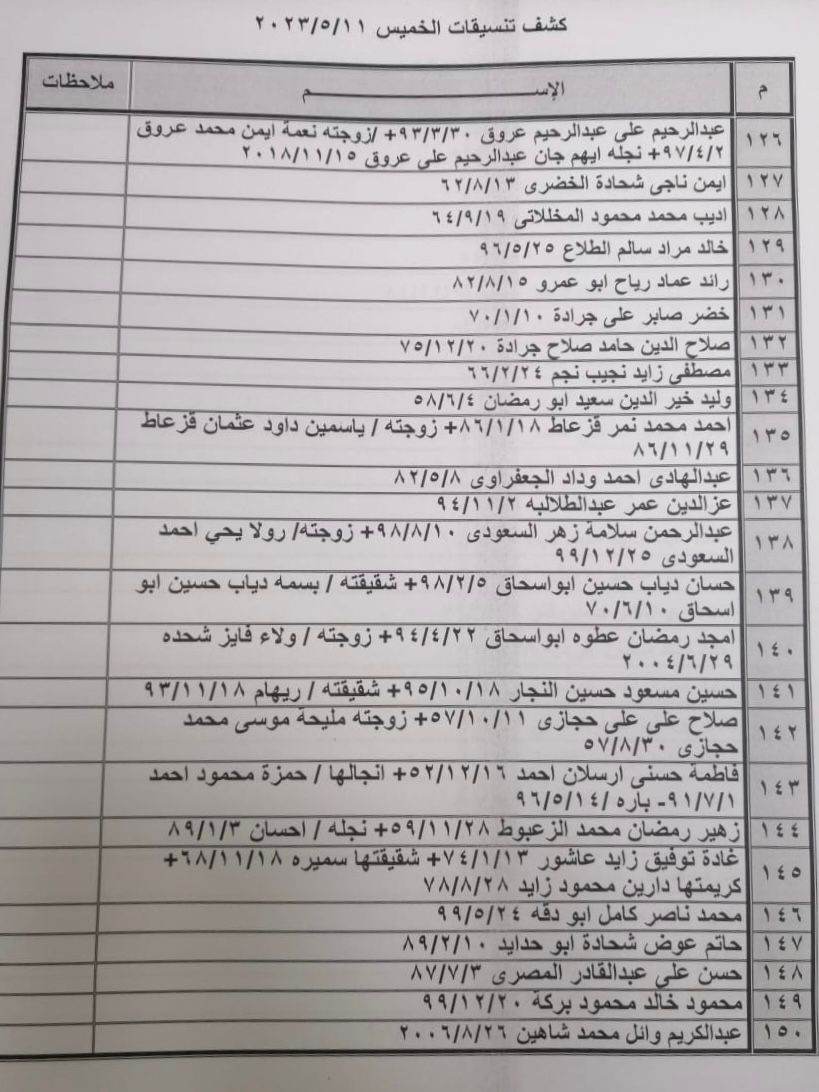 كشف تنسيقات الخميس ٢٠٢٣/٥/١١
م الإســـــــــــم ملاحظات
١٢٦ عبدالرحيم على عبدالرحيم عروق ٩٣/٣/٣٠+ /زوجته نعمة ايمن محمد عروق
٩٧/٤/٢+ نجله ايهم جان عبدالرحيم على عروق ٢٠١٨/١١/١٥
١٢٧ ايمن ناجى شحادة الخضرى ٦٢/٨/١٣
١٢٨ اديب محمد محمود المخللاتى ٦٤/٩/١٩
١٢٩ خالد مراد سالم الطلاع ٩٦/٥/٢٥
١٣٠ رائد عماد رياح ابو عمرو ٨٢/٨/١٥
١٣١ خضر صابر على جرادة ٧٠/١/١٠
١٣٢ صلاح الدين حامد صلاح جرادة ٧٥/١٢/٢٠
١٣٣ مصطفى زايد نجيب نجم ٦٦/٢/٢٤
١٣٤ وليد خير الدين سعيد ابو رمضان ٥٨/٦/٤
١٣٥ احمد محمد نمر قزعاط ٨٦/١/١٨+ زوجته / ياسمين داود عثمان قزعاط
٨٦/١١/٢٩
١٣٦ عبدالهادى احمد وداد الجعفراوى ٨٢/٥/٨
١٣٧ عزالدين عمر عبدالطلالبه ٩٤/١١/٢
١٣٨ عبدالرحمن سلامة زهر السعودى ٩٨/٨/١٠+ زوجته/ رولا يحي احمد
السعودى ٩٩/١٢/٢٥
١٣٩ حسان دياب حسين ابواسحاق ٩٨/٢/٥+ شقيقته / بسمه دياب حسين ابو
اسحاق ٧٠/٦/١٠
١٤٠ امجد رمضان عطوه ابواسحاق ٩٤/٤/٢٢+ زوجته / ولاء فايز شحده
٢٠٠٤/٦/٢٩
١٤١ حسين مسعود حسين النجار ٩٥/١٠/١٨+ شقيقته / ريهام ٩٣/١١/١٨
١٤٢ صلاح على على حجازى ٥٧/١٠/١١+ زوجته مليحة موسى محمد
حجازى ٥٧/٨/٣٠
١٤٣ فاطمة حسنى ارسلان احمد ٥٢/١٢/١٦+ انجالها / حمزة محمود احمد
٩١/٧/١- باره /٩٦/٥/١٤
١٤٤ زهير رمضان محمد الزعبوط ٥٩/١١/٢٨+ نجله / احسان ٨٩/١/٣
١٤٥ غادة توفيق زايد عاشور ٧٤/١/١٣+ شقيقتها سميره ٦٨/١١/١٨+
كريمتها دارين محمود زايد ٧٨/٨/٢٨
١٤٦ محمد ناصر كامل ابو دقه ٩٩/٥/٢٤
١٤٧ حاتم عوض شحادة ابو حدايد ٨٩/٢/١٠
١٤٨ حسن على عبدالقادر المصرى ٨٧/٧/٣
١٤٩ محمود خالد محمود بركة ٩٩/١٢/٢٠
١٥٠ عبدالكريم وائل محمد شاهين ٢٠٠٦/٨/٢٦